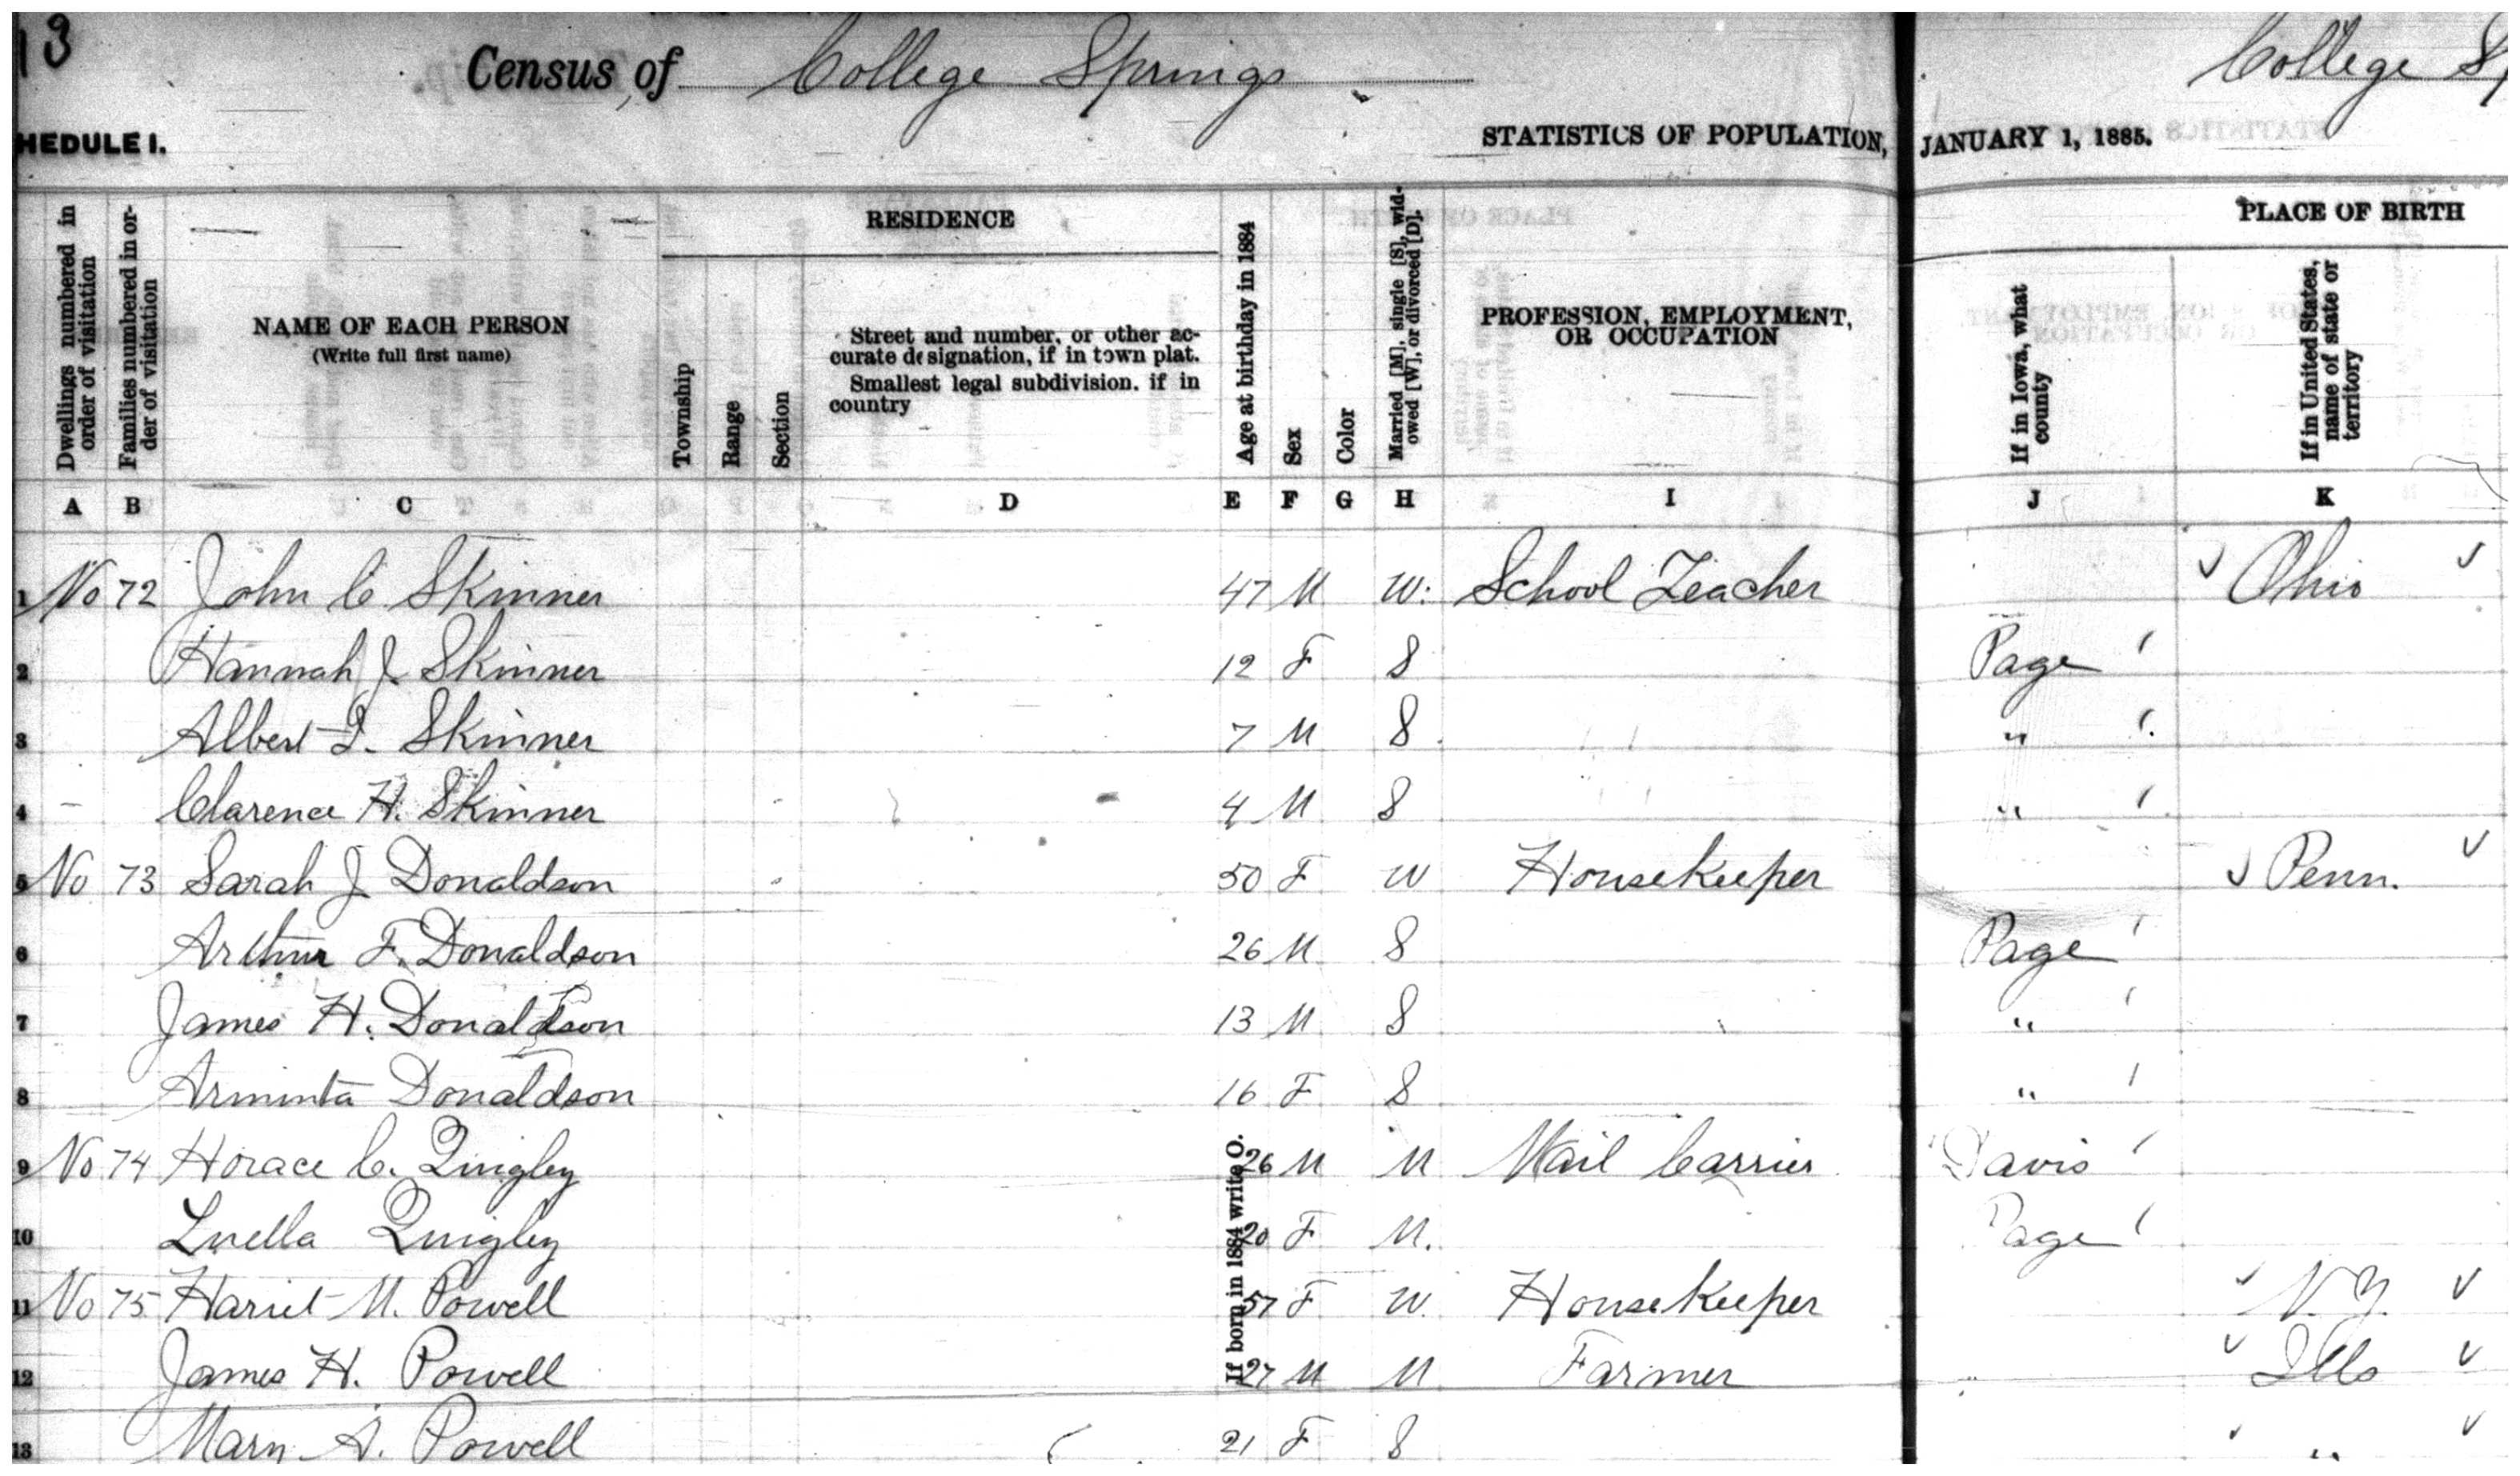 13
Census of College Springs
College Sp
HEDULE I.
STATISTICS OF POPULATION, JANUARY 1, 1885.
Dwellings numbered in order of visitation
Families numbered in or-der of visitation
NAME OF EACH PERSON
(Write full first name)
RESIDENCE
Township
Range
Section
Street and number, or other ac-
curate designation, if in town plat.
Smallest legal subdivision. if in
country
Age at birthday in 1884
Sex
Color
Married [M], single [S], wid-owed [W], or divorced [D].
PROFESSION, EMPLOYMENT,
OR OCCUPATION
PLACE OF BIRTH
If in Iowa, what county
If in United States, name of state or territory
A B C D E F G H I J K
1 No 72 John C Skinner 47 M W. School Teacher Ohio
2 Hannah J Skinner 12 F S Page
3 Albert I. Skinner 7 M S "
4 Clarence H. Skinner 4 M S "
5 No 73 Sarah J Donaldson 50 F W Housekeeper Penn.
6 Arthur F. Donaldson 26 M S Page
7 James H. Donaldson 13 M S "
8 Arminta Donaldson 16 F S "
9 No 74 Horace C. Quigley 26 M M Mail Carrier Davis
10 Luella Quigley 20 F M. Page
11 No 75 Hariet M. Powell 57 F W. Housekeeper N.Y.
12 James H. Powell 27 M M Farmer Ills
13 Mary A. Powell 21 F S "
If born in 1884 write O.